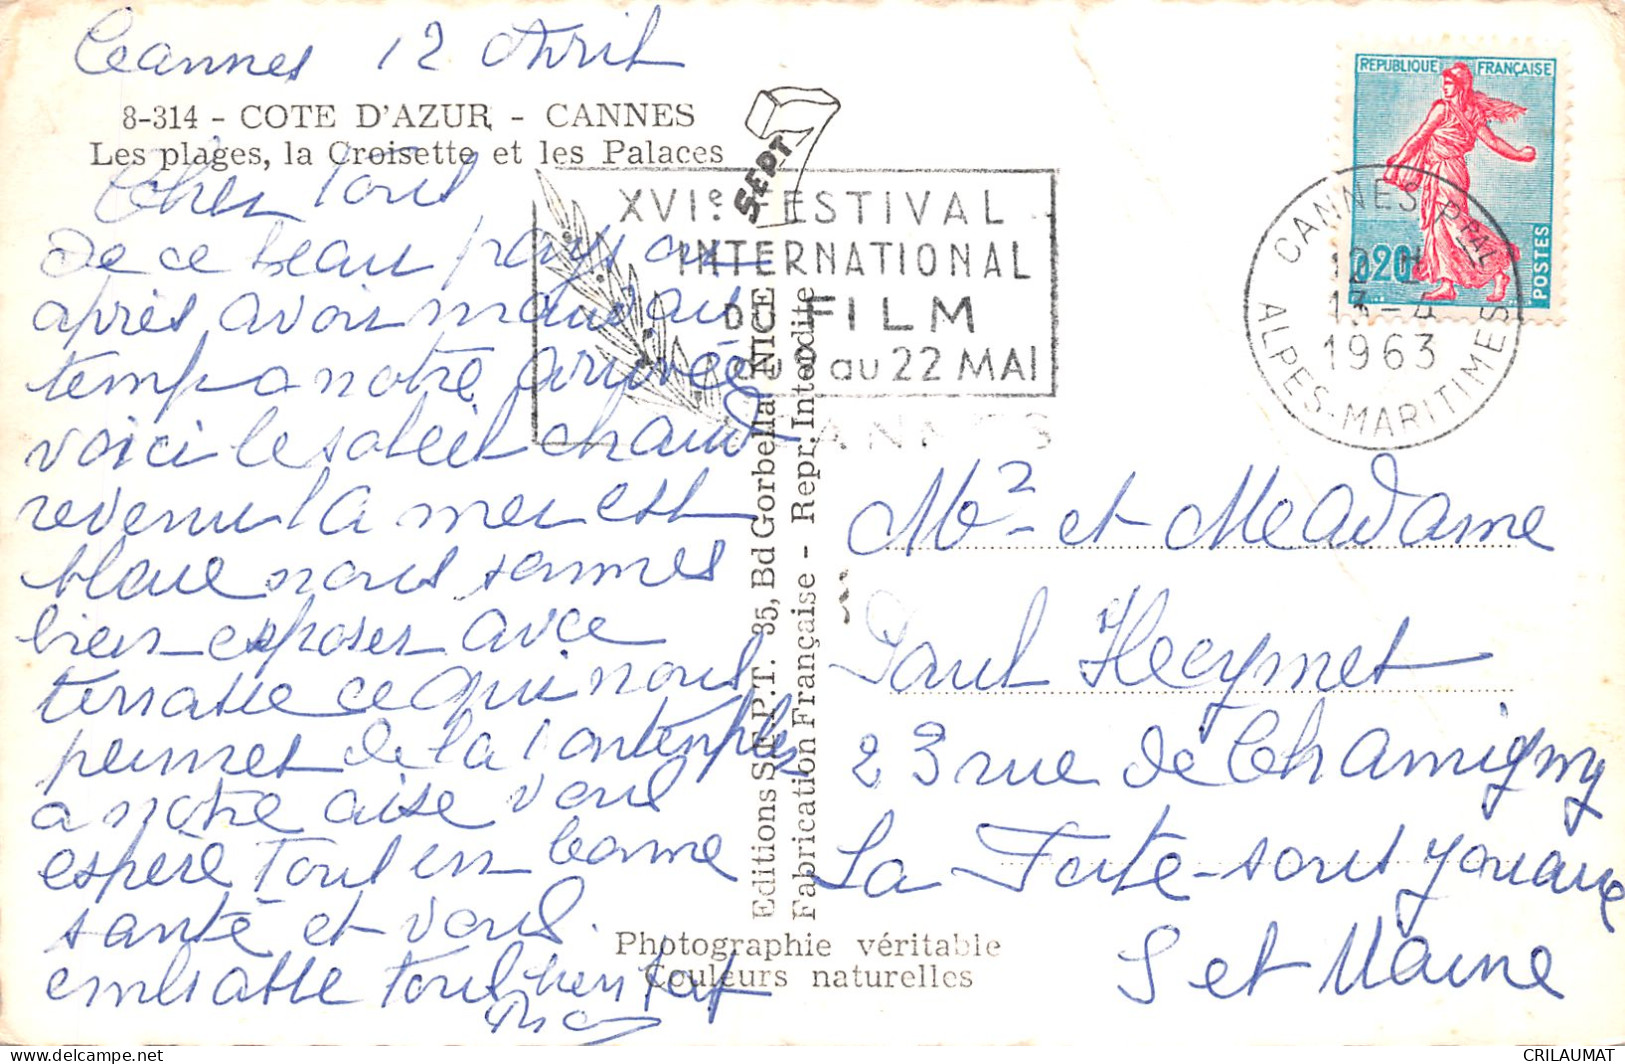 Cannes 12 Avril
8-314 - COTE D'AZUR - CANNES
Les plages, la Croisette et les Palaces
Cher Tous
de ce beau pays ou
après avoir mauvais
temps a notre arrivée
voici le soleil chaud
revenu la mer est
bleue nous sommes
bien exposer avec
terrasse ce qui nous
permet de la contempler
a notre aise vous
espère tous en bonne
santé et vous
embrasse tous bien fort
SEPT
XVIe FESTIVAL
INTERNATIONAL
DU FILM
au 22 MAI
CANNES
Editions S.E.P.T. 35, Bd Gorbella NICE
Fabrication Française - Repr. Interdite
Photographie véritable
Couleurs naturelles
REPUBLIQUE FRANÇAISE
0,20
POSTES
CANNES PPAL
13-4
1963
ALPES-MARITIMES
Mr et Meadame
Paul Hecymet
23 rue de Chamigny
La Ferte-sous Jouarre
S et Marne
CRILAUMAT